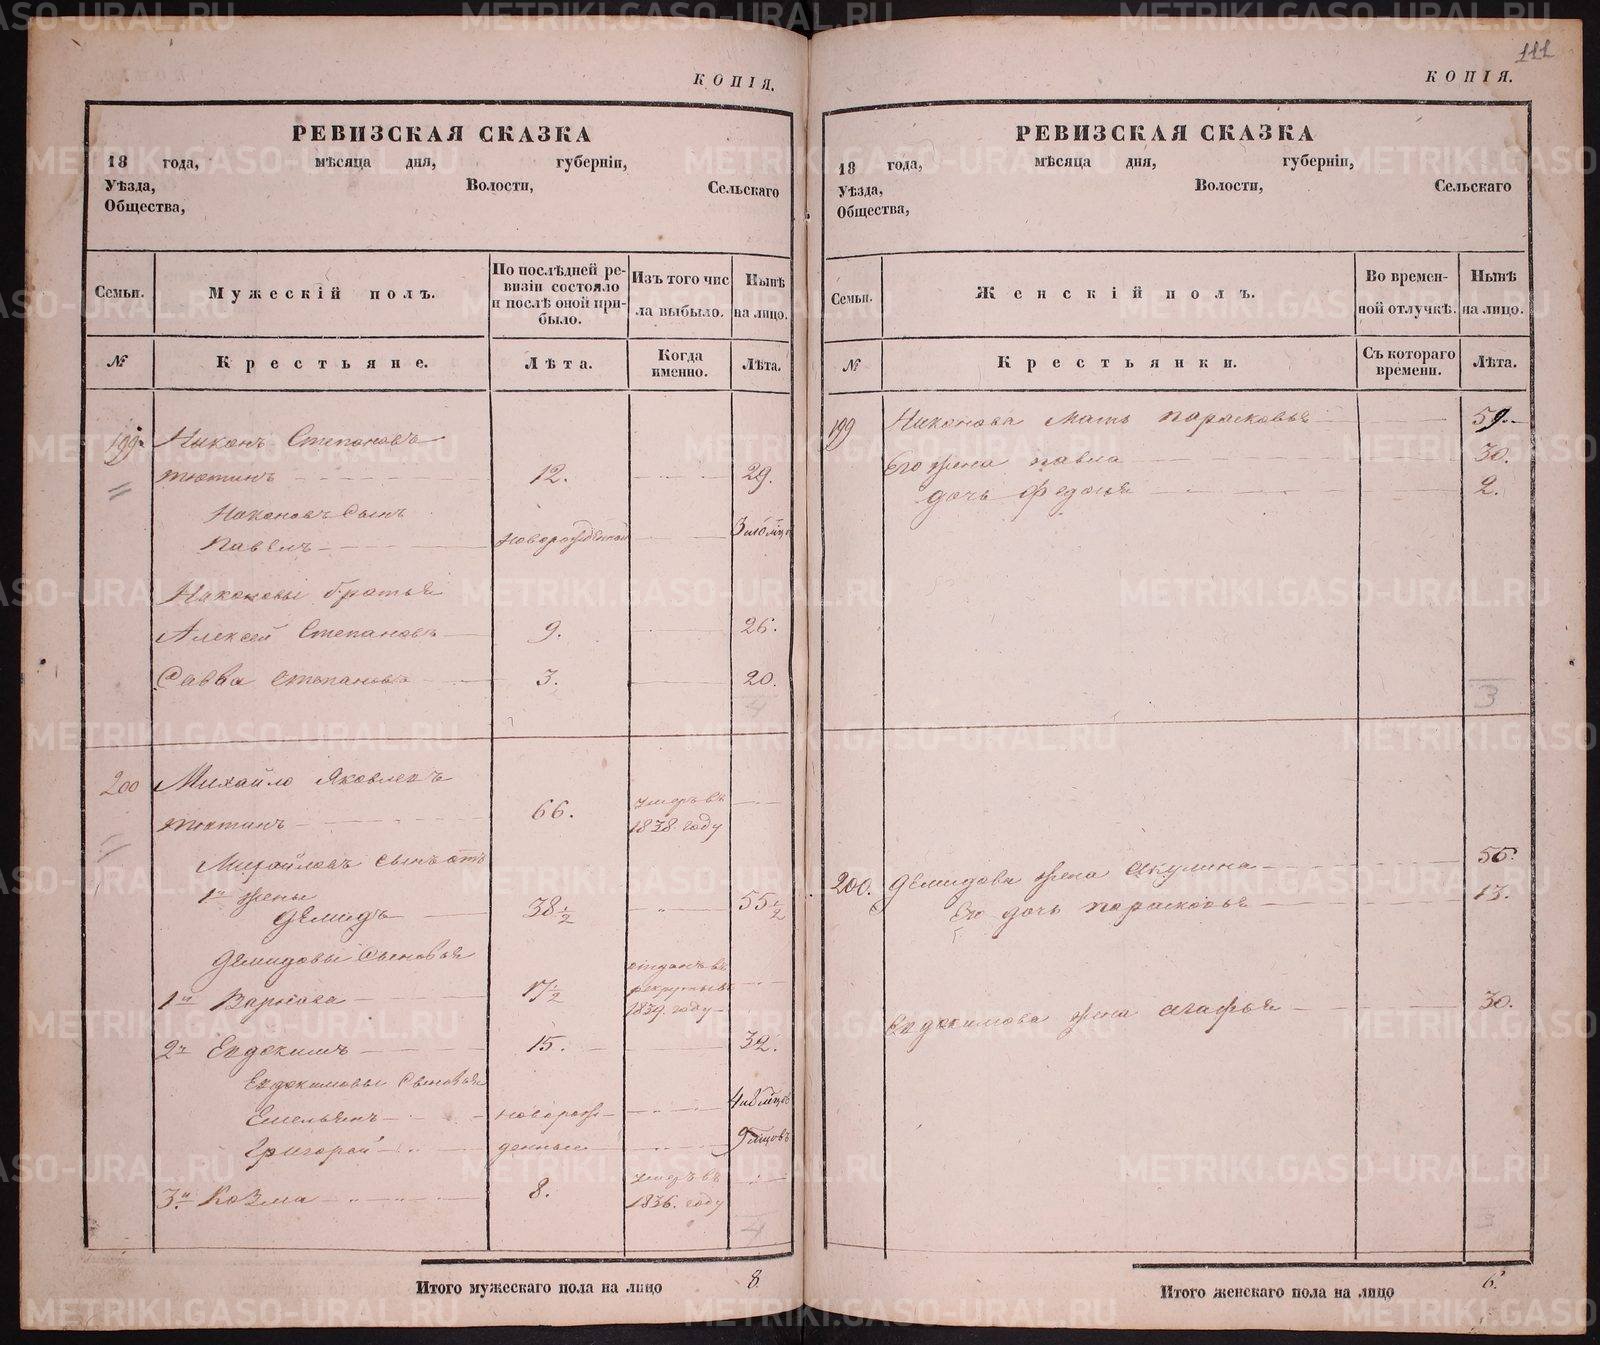 КОПІЯ.
РЕВИЗСКАЯ СКАЗКА
18 года, мѣсяца дня, губерніи,
Уѣзда, Волости, Сельскаго
Общества,
Семьи.
Мужескій полъ.
По послѣдней ре-
визіи состояло
и послѣ оной при-
было.
Изъ того чис
ла выбыло.
Нынѣ
на лицо.
№
Крестьяне.
Лѣта.
Когда
именно.
Лѣта.
199 Никонъ Степановъ
Тютинъ 12. 29.
Никоновъ Сынъ
Павелъ новорожденной
Никоновы братья
Алексей Степановъ 9. 26.
Савва Степановъ 3. 20.
4
200 Михайло Яковлевъ
66. умеръ въ
1838. году
Михайловъ сынъ отъ
1й жены
Демидъ 38 1/2 55 1/2
Демидовы Сыновья
1й 17 1/2 отданъ въ
рекруты въ
1839. году
2й Евдокимъ 15. 32.
Евдокимовы Сыновья
Емельянъ новорож-
Григорей денные 9 мцовъ
3й Козма 8. умеръ въ
1836. году
4
Итого мужескаго пола на лицо 8
111
КОПІЯ.
РЕВИЗСКАЯ СКАЗКА
18 года, мѣсяца дня, губерніи,
Уѣзда, Волости, Сельскаго
Общества,
Семьи.
Женскій полъ.
Во времен-
ной отлучкѣ.
Нынѣ
на лицо.
№
Крестьянки.
Съ котораго
времени.
Лѣта.
199 Никонова мать Парасковья 59.
Его жена Павла 30.
дочь Федосья 2.
3
200. Демидова жена Акулина 56.
Его дочь Парасковья 13.
Евдокимова жена Агафья 30.
3
Итого женскаго пола на лицо 6.
METRIKI.GASO-URAL.RU